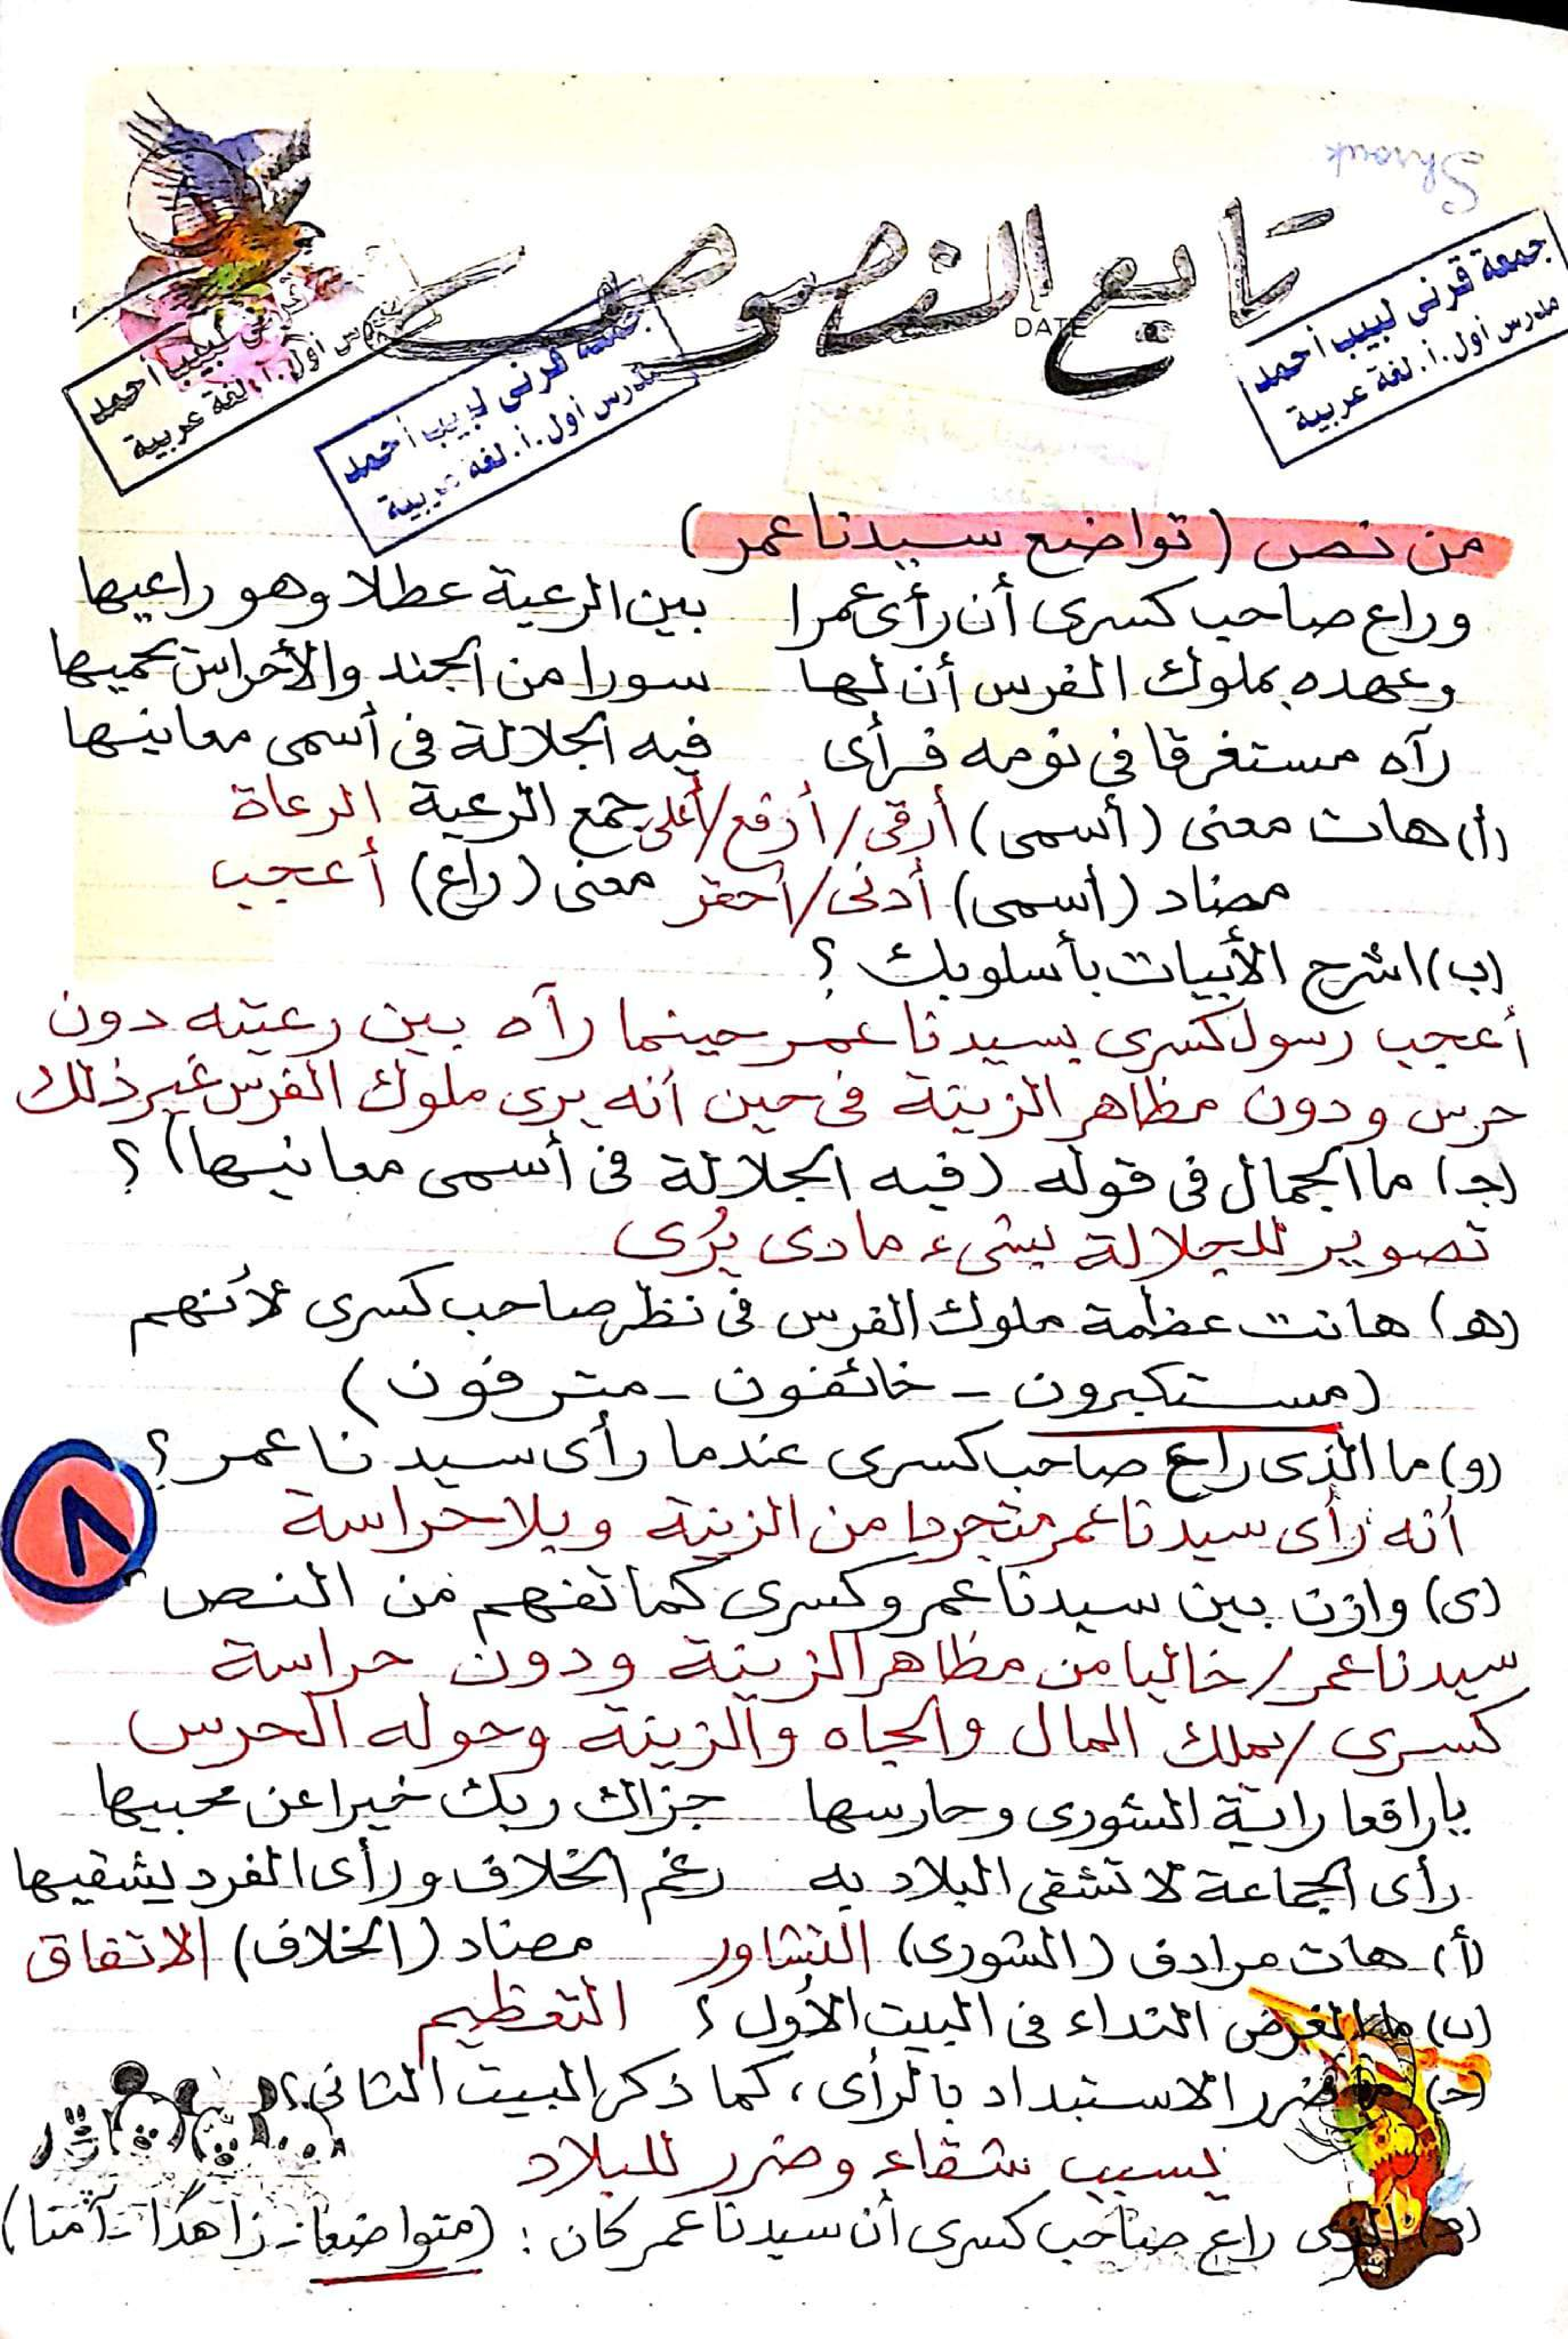 Shrouk
تابع النصوص
DATE
جمعة قرني لبيب أحمد
مدرس أول.أ.لغة عربية
جمعة قرني لبيب أحمد
مدرس أول.أ.لغة عربية
قرني لبيب أحمد
مدرس أول.أ.لغة عربية
من نص (تواضع سيدنا عمر)
وراع صاحب كسرى أن رأى عمرا بين الرعية عطلا وهو راعيها
وعهده بملوك الفرس أن لها سورا من الجند والأحراس تحميها
رآه مستغرقا فى نومه فرأى فيه الجلالة فى أسمى معانيها
(أ) هات معنى (أسمى) أرقى/أرفع/أعلى جمع الرعية الرعاة
مضاد (أسمى) أدنى/أحقر معنى (راع) أعجب
(ب) اشرح الأبيات بأسلوبك ؟
أعجب رسول كسرى بسيدنا عمر حينما رآه بين رعيته دون
حرس ودون مظاهر الزينة فى حين أنه يرى ملوك الفرس غير ذلك
(جـ) ما الجمال فى قوله (فيه الجلالة فى أسمى معانيها) ؟
تصوير للجلالة بشىء مادى يُرى
(هـ) هانت عظمة ملوك الفرس فى نظر صاحب كسرى لأنهم
(مستكبرون - خائفون - مترفون)
(و) ما الذى راع صاحب كسرى عندما رأى سيدنا عمر ؟
أنه رأى سيدنا عمر متجردا من الزينة وبلا حراسة
٨
(ى) وازن بين سيدنا عمر وكسرى كما تفهم من النص
سيدنا عمر/ خاليا من مظاهر الزينة ودون حراسة
كسرى/ يملك المال والجاه والزينة وحوله الحرس
يا رافعا راية الشورى وحارسها جزاك ربك خيرا عن محبيها
رأى الجماعة لا تشقى البلاد به رغم الخلاف ورأى الفرد يشقيها
(أ) هات مرادف (الشورى) التشاور مضاد (الخلاف) الاتفاق
(ب) ما الغرض النداء فى البيت الأول ؟ التعظيم
(جـ) ما ضرر الاستبداد بالرأى، كما ذكر البيت الثانى؟
يسبب شقاء وضرر للبلاد
(د) الذى راع صاحب كسرى أن سيدنا عمر كان : (متواضعا - زاهدا - آمنا)